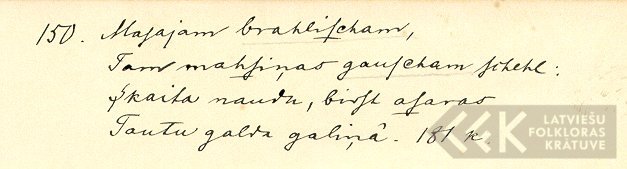 150. Masajam brahlischam,
Tam mahsiņas gauscham schehl:
Skaita naudu, birst asaras
Tautu galda galiņâ. 181 k.
LATVIEŠU
FOLKLORAS
KRĀTUVE